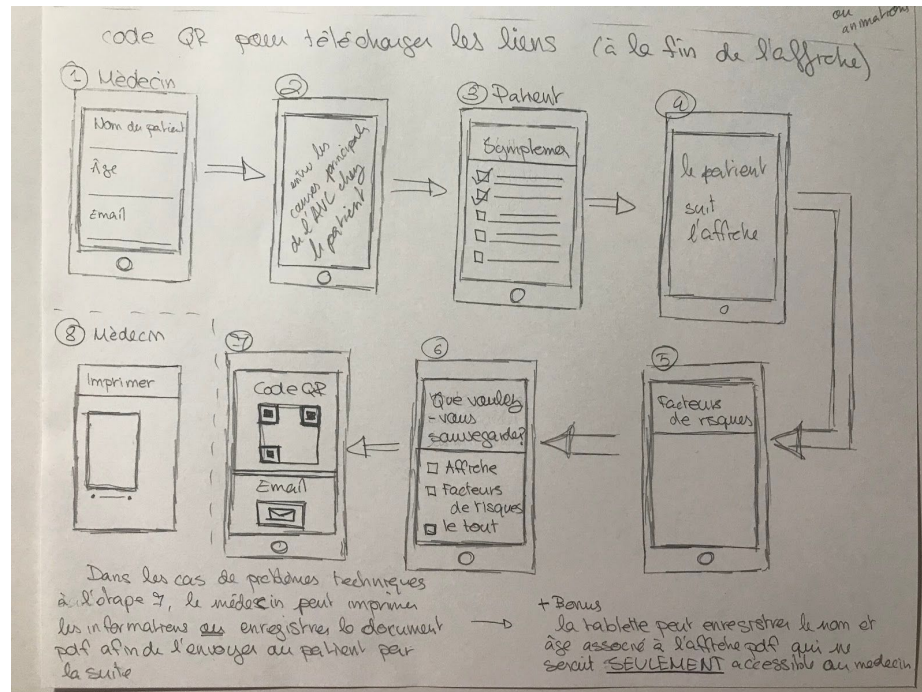 ou
animations
code QR pour télécharger les liens (à la fin de l'affiche)
① Médecin
Nom du patient
Âge
Email
②
entre les
causes principales
de l'AVC chez
le patient
③ Patient
Symptomes
④
le patient
suit
l'affiche
⑤
Facteurs
de risques
⑥
Que voulez
-vous
sauvegarder?
Affiche
Facteurs
de risques
le tout
⑦
Code QR
Email
⑧ Médecin
Imprimer
Dans les cas de problèmes techniques
à l'étape 7, le médecin peut imprimer
les informations ou enregistrer le document
pdf afin de l'envoyer au patient par
la suite
+ Bonus
la tablette peut enregistrer le nom et
âge associé à l'affiche pdf qui ne
serait SEULEMENT accessible au medecin